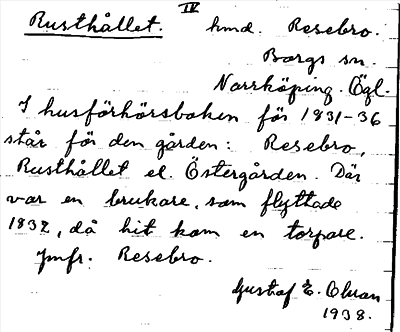 Rusthållet. IV hmd. Resebro.
Borgs sn.
Norrköping. Ögl.
I husförhörsboken för 1831-36
står för den gården: Resebro,
Rusthållet el. Östergården. Där
var en brukare, som flyttade
1832, då hit kom en torpare.
Jmfr. Resebro.
Gustaf E.
1938.